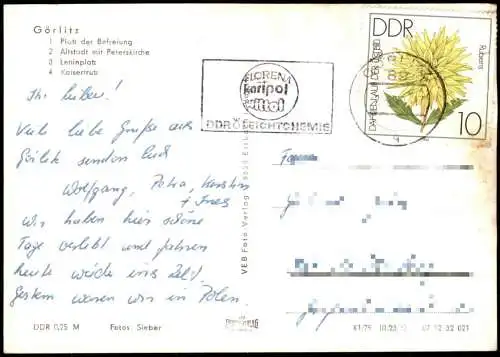 Görlitz
1 Platz der Befreiung
2 Altstadt mit Peterskirche
3 Leninplatz
4 Kaisertrutz
Ihr Lieben!
Viele liebe Grüße aus
Görlitz senden Euch
Wolfgang, Petra, Kerstin
+ Ines
Wir haben hier schöne
Tage verlebt und fahren
heute wieder ins Zelt.
Gestern waren wir in Polen.
DDR 0,25 M
Fotos: Sieber
VEB Foto-Verlag
FLORENA
karipol
rittol
DDR LEICHTCHEMIE
DDR
Rubens
10
61/79
07 12 32 021